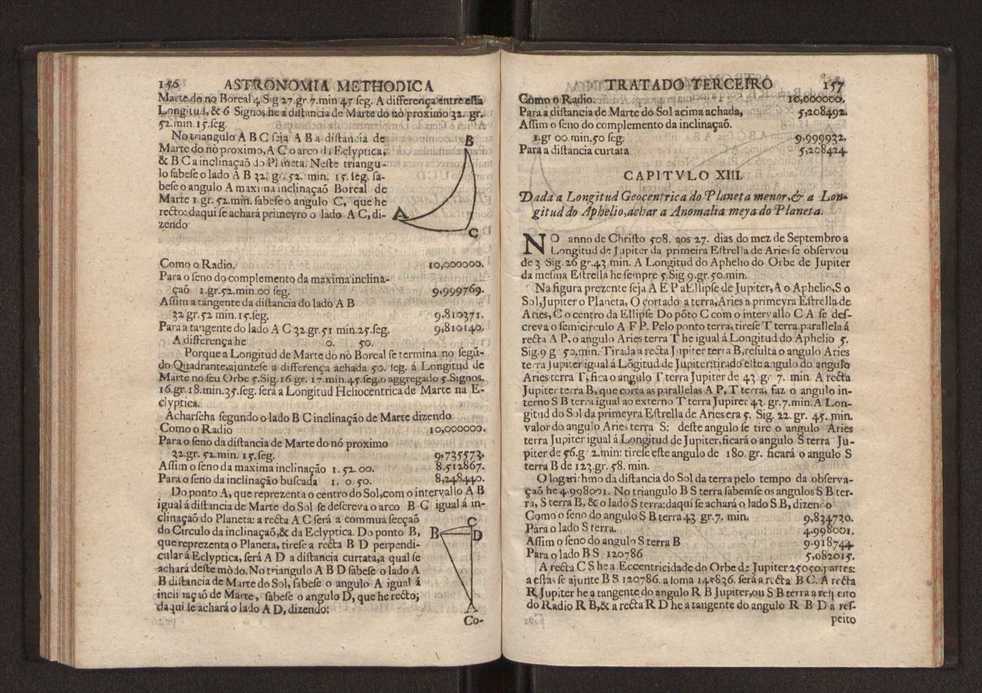 156 ASTRONOMIA METHODICA
Marte do nò Boreal 4 Sig 27. gr 7. min 45 seg. A differença entre esta
Longitud, & 6 Signos, he a distancia de Marte do nò proximo 32. gr.
52. min. 15. seg.
No triangulo A B C seja A B a distancia de
Marte do nò proximo, A C o arco da Eclyptica,
& B C a inclinaçaõ do Planeta. Neste triangu-
lo sabese o lado A B 32. gr. 52. min. 15. seg. sa-
bese o angulo A maxima inclinaçaõ Boreal de
Marte 1. gr. 52. min. sabese o angulo C, que he
recto: daqui se achará primeyro o lado A C, di-
zendo
B
A
C
Como o Radio. 10,000000.
Para o seno do complemento da maxima inclina-
çaõ 1. gr. 52. min. 00 seg. 9,999769.
Assim a tangente da distancia do lado A B
32 gr. 52 min. 15. seg. 9,810371.
Para a tangente do lado A C 32. gr. 51 min. 25. seg. 9,810140.
A differença he 0. 50.
Porque a Longitud de Marte do nò Boreal se termina no segũ-
do Quadrante, ajuntese a differença achada 50. seg. á Longitud de
Marte no seu Orbe 5. Sig. 16 gr. 17. min. 45. seg. o aggregado 5. Signos.
16. gr. 18. min. 35. seg. será a Longitud Heliocentrica de Marte na E-
clyptica.
Acharseha segundo o lado B C inclinaçaõ de Marte dizendo
Como o Radio 10,000000.
Para o seno da distancia de Marte do nó proximo
32. gr. 52. min. 15. seg. 9,735573.
Assim o seno da maxima inclinaçaõ 1. 52. 00. 8.512867.
Para o seno da inclinação buscada 1. 0. 50. 8,248440.
Do ponto A, que reprezenta o centro do Sol, com o intervallo A B
igual á distancia de Marte do Sol se descreva o arco B C igual á in-
clinaçaõ do Planeta: a recta A C será a commua secçaõ
do Circulo da inclinaçaõ, & da Eclyptica. Do ponto B,
que reprezenta o Planeta, tirese a recta B D perpendi-
cular á Eclyptica, será A D a distancia curtata, a qual se
achará deste módo. No triangulo A B D sabese o lado A
B distancia de Marte do Sol, sabese o angulo A igual á
inclinaçaõ de Marte, sabese o angulo D, que he recto;
da qui se achará o lado A D, dizendo:
C
B D
A
Co-
TRATADO TERCEIRO 157
Como o Radio. 10,000000.
Para a distancia de Marte do Sol acima achada, 5,208492.
Assim o seno do complemento da inclinaçaõ.
1. gr 00. min. 50 seg. 9.999932.
Para a distancia curtata 5,208424.
CAPITVLO XIII.
Dada a Longitud Geocentrica do Planeta menor, & a Lon-
gitud do Aphelio, achar a Anomalia meya do Planeta.
NO anno de Christo 508. aos 27. dias do mez de Septembro a
Longitud de Jupiter da primeira Estrella de Aries se observou
de 3 Sig. 26 gr. 43. min. A Longitud do Aphelio do Orbe de Jupiter
da mesma Estrella he sempre 5 Sig 9. gr. 50. min.
Na figura prezente seja A E P a Ellipse de Jupiter, A o Aphelio, S o
Sol, Jupiter o Planeta, O cortado a terra, Aries a primeyra Estrella de
Aries, C o centro da Ellipse Do põto C com o intervallo C A se des-
creva o semicirculo A F P. Pelo ponto terra, tirese T terra parallela á
recta A P, o angulo Aries terra T he igual á Longitud do Aphelio 5.
Sig. 9 g 50, min. Tirada a recta Jupiter terra B, resulta o angulo Aries
terra Jupiter igual á Lõgitud de Jupiter: tirado este angulo do angulo
Aries terra T, fica o angulo T terra Jupiter de 43. gr 7. min. A recta
Jupiter terra B, que corta as parallelas A P, T terra, faz o angulo in-
terno S B terra igual ao externo T terra Jupiter 43. gr. 7. min. A Lon-
gitud do Sol da primeyra Estrella de Aries era 5. Sig. 22. gr. 45. min.
valor do angulo Aries terra S: deste angulo se tire o angulo Aries
terra Jupiter igual á Longitud de Jupiter, ficará o angulo S terra Ju-
piter de 56. g 2. min: tirese este angulo de 180. gr. ficará o angulo S
terra B de 123. gr. 58. min.
O logarithmo da distancia do Sol da terra pelo tempo da observa-
çaõ he 4.998001. No triangulo B S terra sabemse os angulos S B ter-
ra, S terra B, & o lado S terra: daqui se achará o lado S B, dizendo
Como o seno do angulo S B terra 43 gr. 7. min. 9,834730.
Para o lado S terra. 4.998001.
Assim o seno do angulo S terra B 9.918744.
Para o lado B S 120786 5.082015.
A recta C S he a Eccentricidade do Orbe de Jupiter 25050. partes:
a estas se ajunte B S 120786. a soma 145836. será a recta B C. A recta
R Jupiter he a tangente do angulo R B Jupiter, ou S B terra a respeito
do Radio R B, & a recta R D he a tangente do angulo R B D a res-
peito